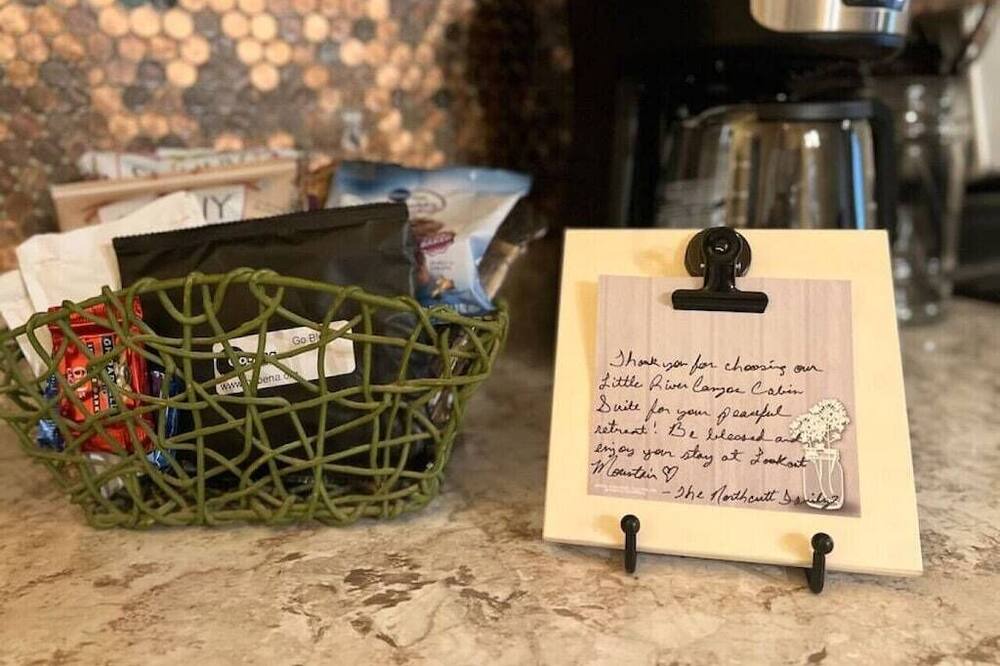 NY
Go Bl
www.
Thank you for choosing our
Little River Canyon Cabin
Suite for your peaceful
retreat! Be blessed and
enjoy your stay at Lookout
Mountain ♡
- The Northcutt Family